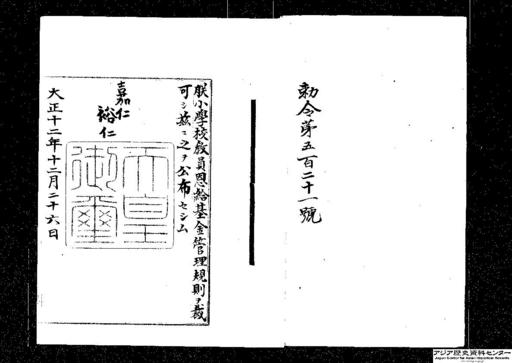 勅令第五百二十一號
朕小學校教員恩給基金管理規則ヲ裁
可シ茲ニ之ヲ公布セシム
嘉仁
裕仁
天皇
御璽
大正十二年十二月二十六日
アジア歴史資料センター
Japan Center for Asian Historical Records